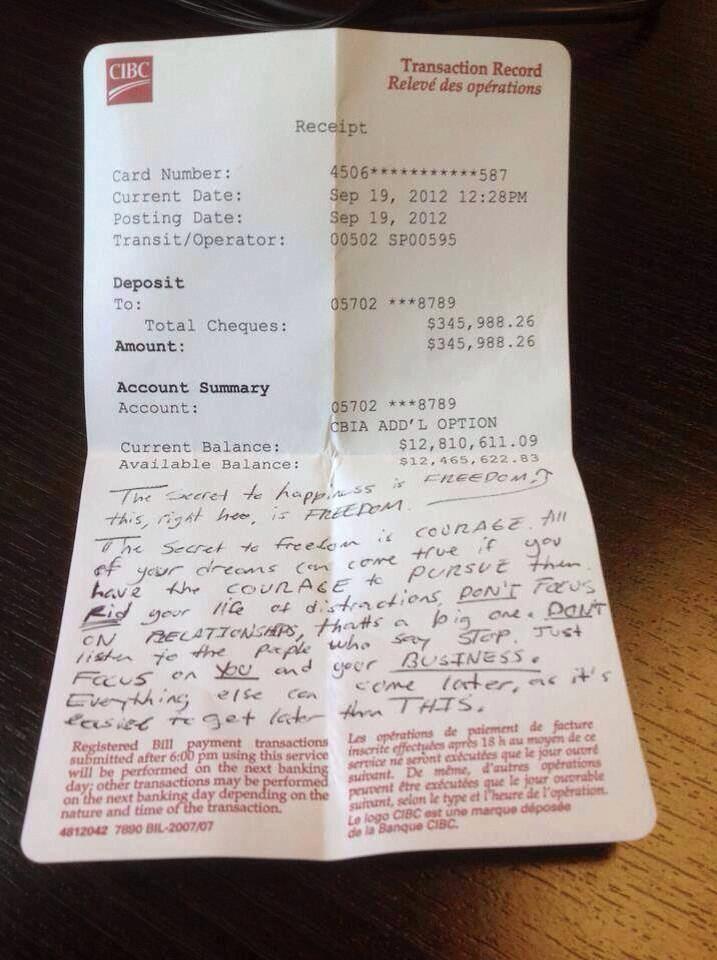 CIBC
Transaction Record
Relevé des opérations
Receipt
Card Number: 4506***********587
Current Date: Sep 19, 2012 12:28PM
Posting Date: Sep 19, 2012
Transit/Operator: 00502 SP00595
Deposit
To: 05702 ***8789
Total Cheques: $345,988.26
Amount: $345,988.26
Account Summary
Account: 05702 ***8789
CBIA ADD'L OPTION
Current Balance: $12,810,611.09
Available Balance: $12,465,622.83
The secret to happiness is FREEDOM,
this, right here, is FREEDOM.
The secret to freedom is COURAGE. All
of your dreams can come true if you
have the COURAGE to PURSUE them.
Rid your life of distractions, DON'T FOCUS
ON RELATIONSHIPS, thatts a big one. DON'T
listen to the people who say STOP. Just
FOCUS on YOU and your BUSINESS.
Everything else can come later, as it's
easier to get later than THIS.
Registered Bill payment transactions
submitted after 6:00 pm using this service
will be performed on the next banking
day; other transactions may be performed
on the next banking day depending on the
nature and time of the transaction.
4812042 7890 BIL-2007/07
Les opérations de paiement de facture
inscrite effectuées après 18 h au moyen de ce
service ne seront exécutées que le jour ouvré
suivant. De même, d'autres opérations
peuvent être exécutées que le jour ouvrable
suivant, selon le type et l'heure de l'opération.
Le logo CIBC est une marque déposée
de la Banque CIBC.